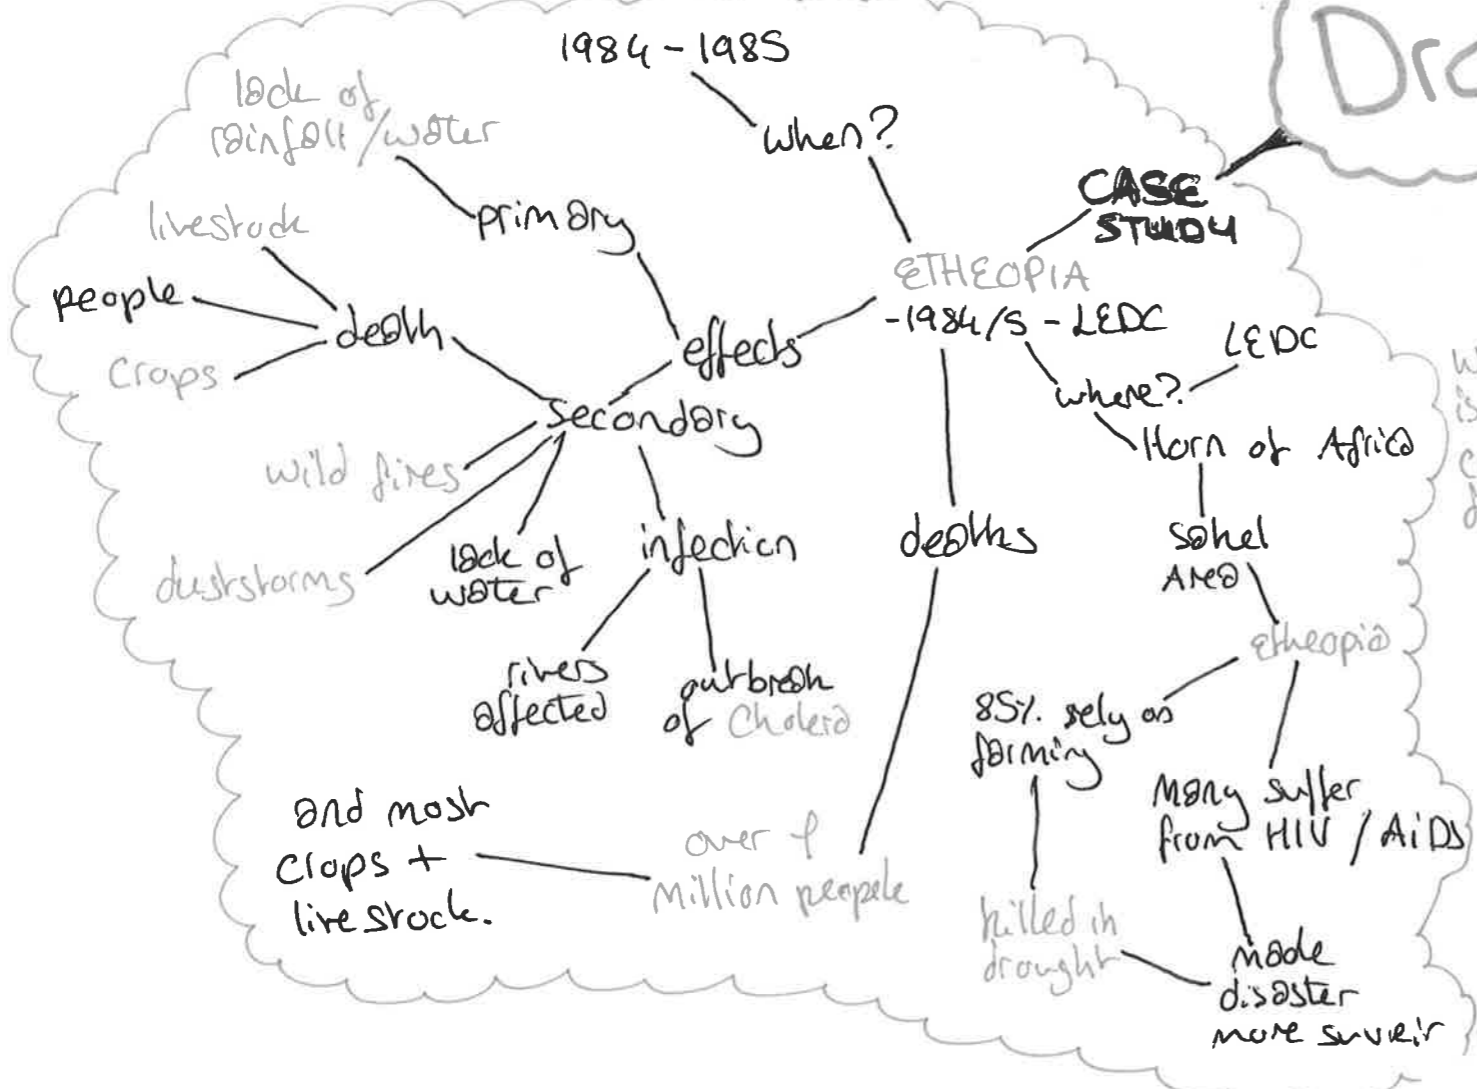 1984 - 1985
when?
CASE
STUDY
ETHEOPIA
- 1984/5 - LEDC
lack of
rainfall/water
primary
livestock
people
crops
death
effects
secondary
wild fires
duststorms
lack of
water
infection
rivers
affected
outbreak
of Cholera
deaths
over 1
million peopele
and most
crops +
livestock.
where?
LEDC
Horn of Africa
sahel
Area
etheopia
85% rely on
farming
killed in
drought
Many suffer
from HIV / AiDS
made
disaster
more surveir